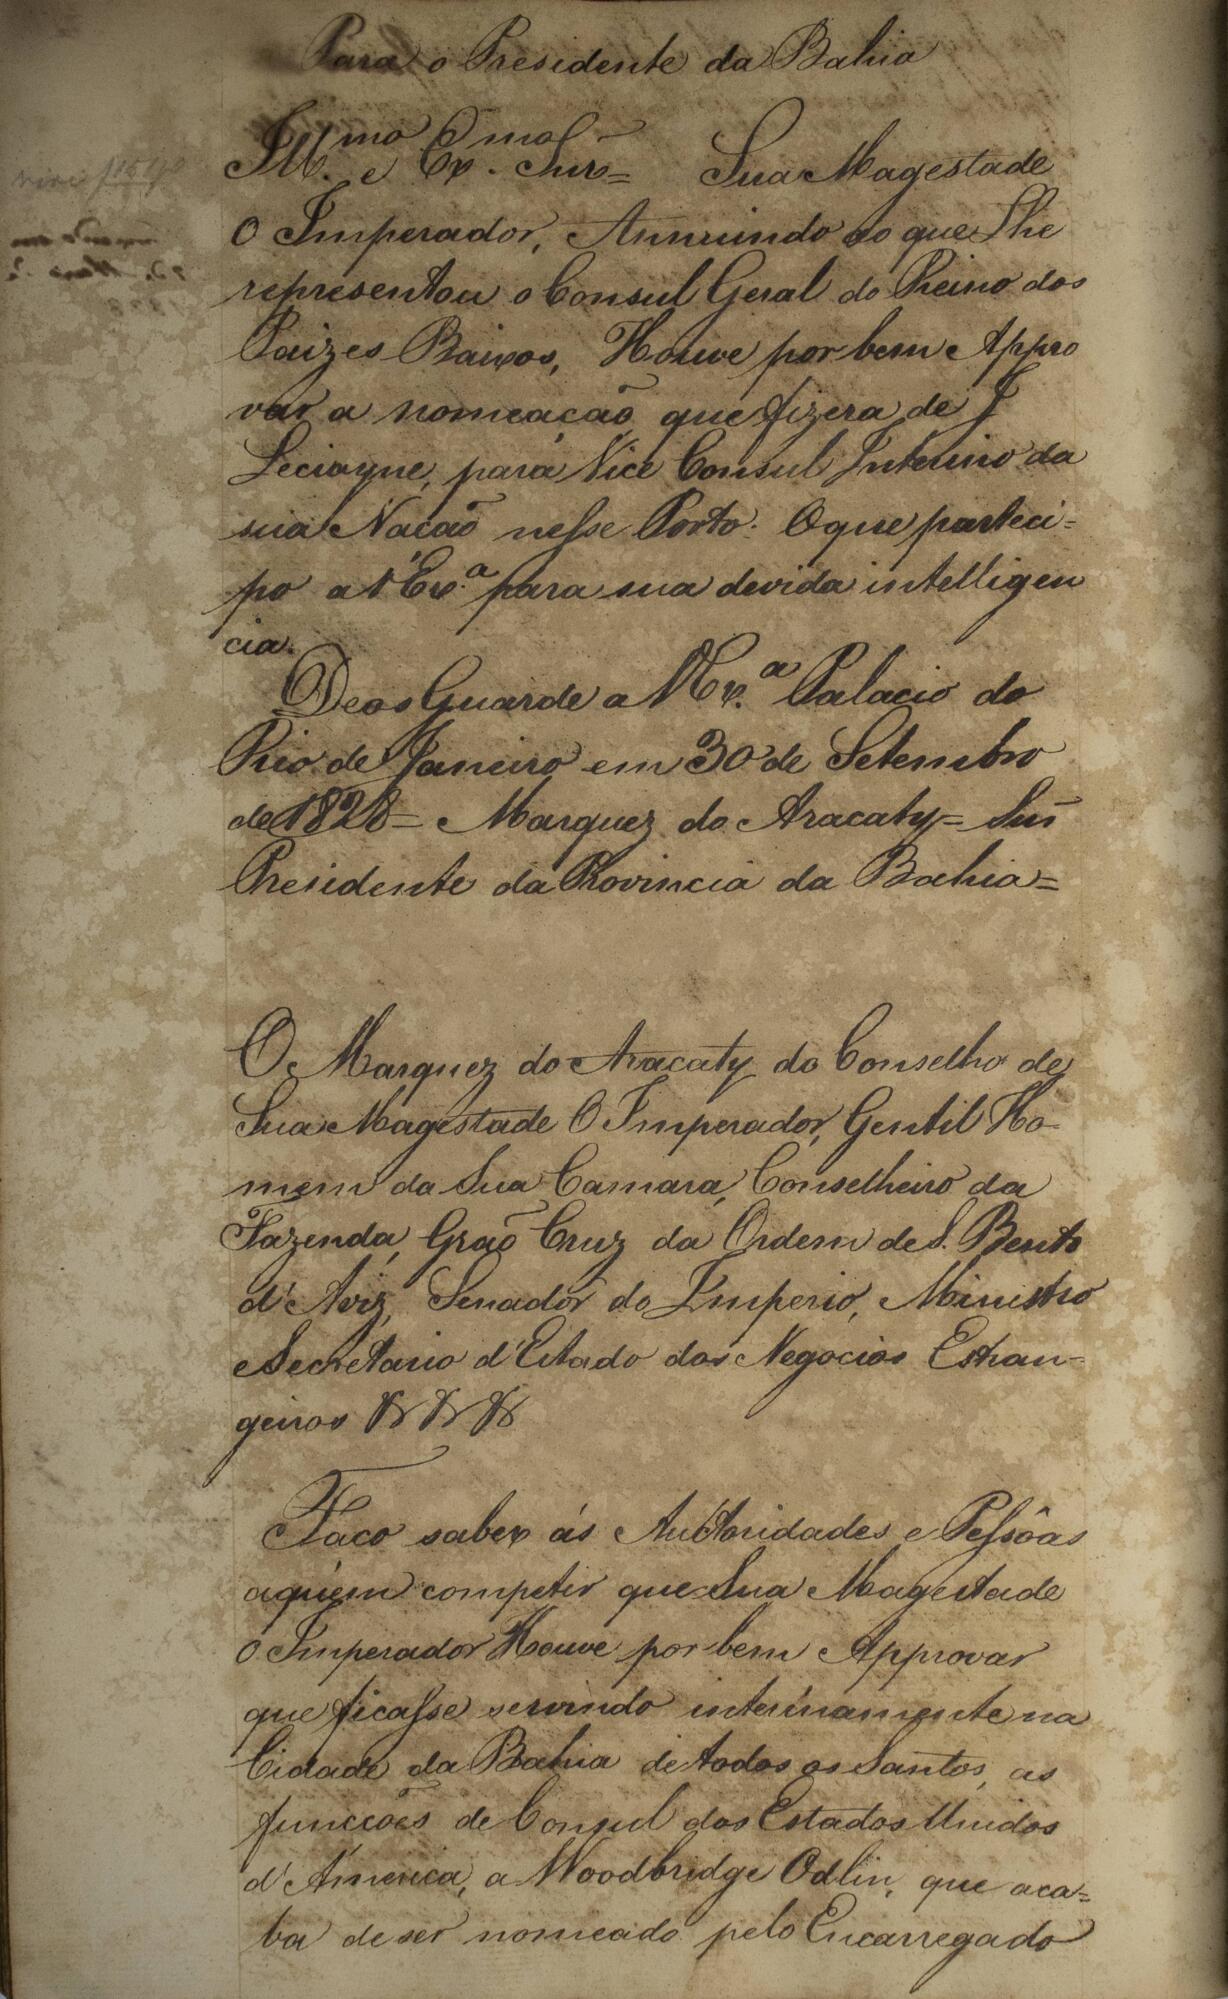 Para o Presidente da Bahia
Ill.mo e Ex.mo Snr= Sua Magestade
O Imperador, Annuindo ao que Lhe
representou o Consul Geral do Reino dos
Paizes Baixos, Houve por bem Appro
var a nomeação que fizera de J
para Vice Consul Interino da
sua Nação nesse Porto. O que parteci=
po a V Ex.a para sua devida intelligen
cia.
Deos Guarde a V Ex.a Palacio do
Rio de Janeiro em 30 de Setembro
de 1828= Marquez do Aracaty= Snr
Presidente da Provincia da Bahia=
O Marquez do Aracaty do Conselho de
Sua Magestade O Imperador, Gentil Ho-
mem da Sua Camara, Conselheiro da
Fazenda, Grão Cruz da Ordem de S. Bento
d'Aviz, Senador do Imperio, Ministro
e Secretario d'Estado dos Negocios Estran-
geiros
Faço saber ás Authoridades e Pessôas
aquem competir que Sua Magestade
O Imperador Houve por bem Approvar
que ficasse servindo interinamente na
Cidade da Bahia de todos os Santos, as
funcções de Consul dos Estados Unidos
d'America, a Woodbridge Odlin, que aca=
ba de ser nomeado pelo Encarregado